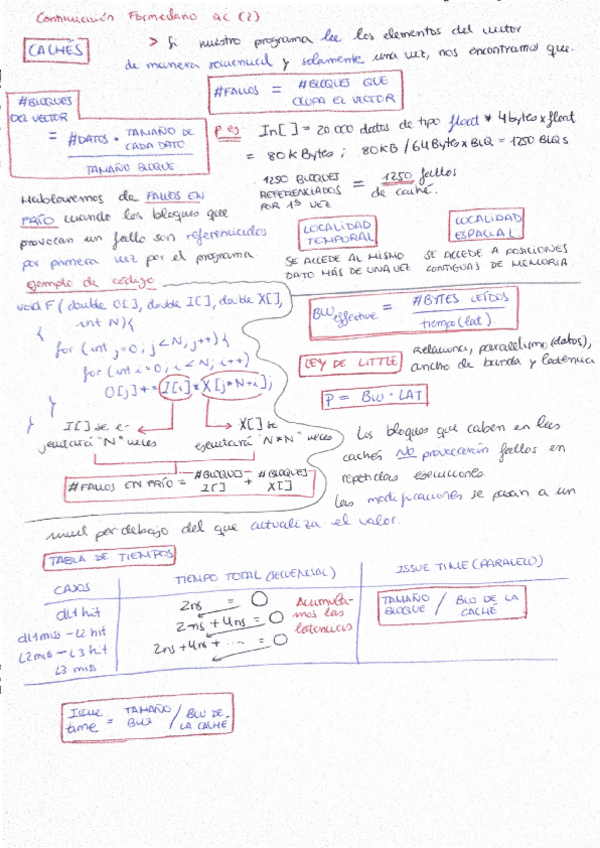 Continuación Formulario AC (2)
CACHÉS
> Si nuestro programa lee los elementos del vector
de manera secuencial y solamente una vez, nos encontramos que:
#BLOQUES DEL VECTOR = #DATOS · TAMAÑO DE CADA DATO / TAMAÑO BLOQUE
#FALLOS = #BLOQUES QUE
OCUPA EL VECTOR
P ej In[] = 20 000 datos de tipo float * 4 bytes x float
= 80 kBytes ; 80KB / 64 Bytes x BLQ = 1250 BLQs
1250 BLOQUES
REFERENCIADOS = 1250 fallos
POR 1ª VEZ de caché.
Hablaremos de FALLOS EN
FRÍO cuando los bloques que
provocan un fallo son referenciados
por primera vez por el programa.
LOCALIDAD
TEMPORAL
SE ACCEDE AL MISMO
DATO MÁS DE UNA VEZ
LOCALIDAD
ESPACIAL
SE ACCEDE A POSICIONES
CONTIGUAS DE MEMORIA.
ejemplo de código
void F( double O[], double I[], double X[],
int N){
{
for (int j=0; j<N, j++){
for (int i=0, i<N; i++)
O[j] += I[i] * X[j*N+i];
}
}
I[] se e-
jecutará "N" veces
X[] se
ejecutará "N*N" veces
#FALLOS EN FRÍO = #BLOQUES I[] + #BLOQUES X[]
BW effective = #BYTES LEÍDOS / tiempo (lat)
LEY DE LITTLE
Relaciona, paralelismo (datos),
ancho de banda y latencia
P = BW · LAT
Los bloques que caben en las
cachés NO provocarán fallos en
repetidas ejecuciones.
Las modificaciones se pasan a un
nivel por debajo del que actualiza el valor.
TABLA DE TIEMPOS
CASOS
TIEMPO TOTAL (SECUENCIAL)
ISSUE TIME (PARALELO)
dL1 hit
dL1 miss - L2 hit
L2 miss - L3 hit
L3 miss
2ns = O
2ns + 4ns = O
2ns + 4ns + ... = O
Acumula-
mos las
latencias
TAMAÑO
BLOQUE / BW DE LA
CACHÉ
Issue time = TAMAÑO BLQ / BW DE LA CACHÉ